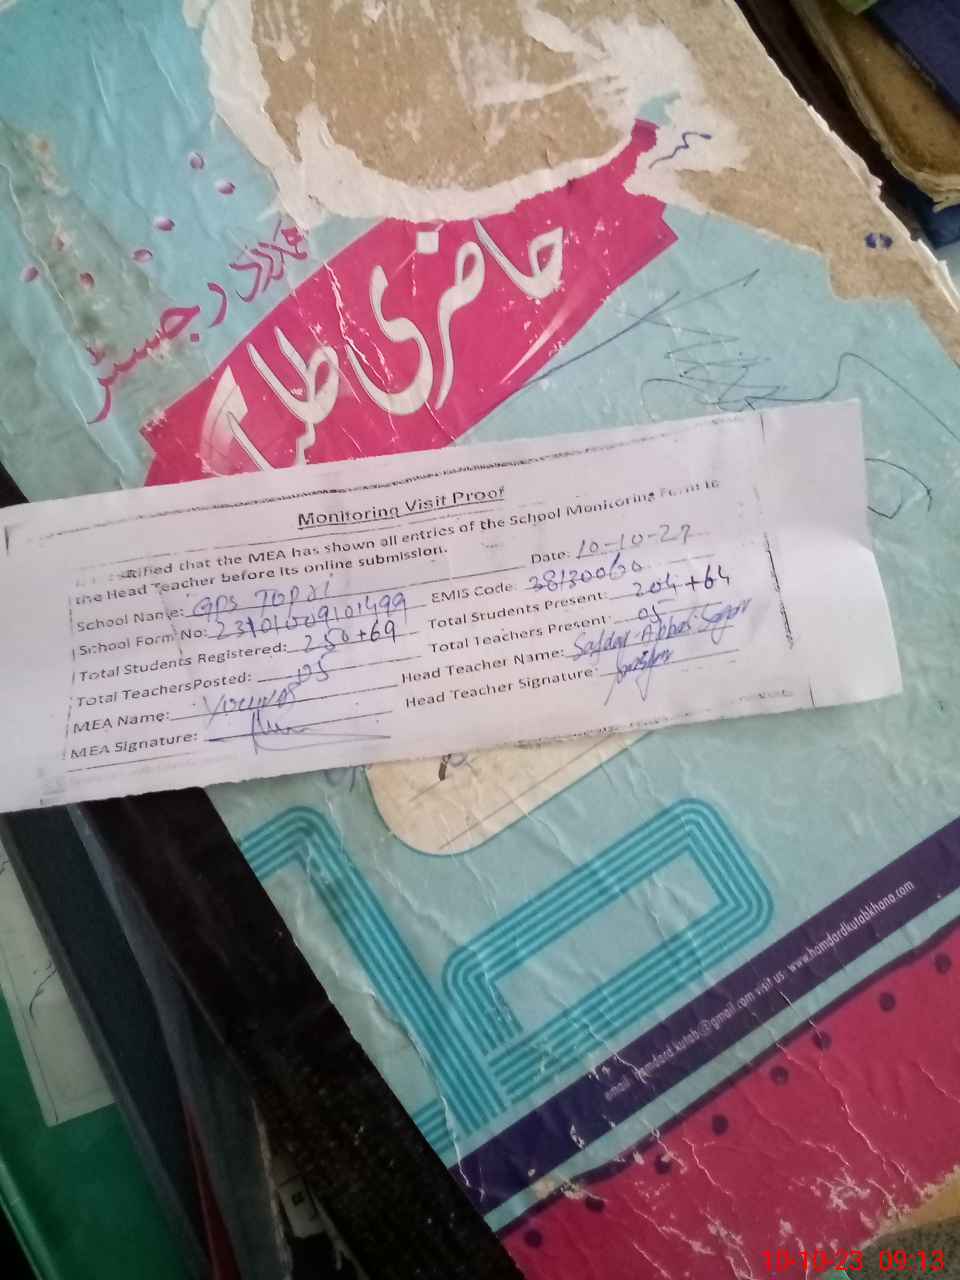 حاضری طلباء
رجسٹر
Monitoring Visit Proof
that the MEA has shown all entries of the School Monitoring Form to
the Head Teacher before its online submission.
Date: 10-10-23
School Name: GPS Topai
EMIS Code: 38130060
School Form No: 23101009101499
Total Students Present: 204+64
Total Students Registered: 250+69
Total Teachers Present: 05
Total TeachersPosted: 05
Head Teacher Name: Safdar Abbas
MEA Name:
Head Teacher Signature:
MEA Signature:
email: hamdard.kutab@gmail.com visit us: www.hamdardkutabkhana.com
10-10-23 09:13